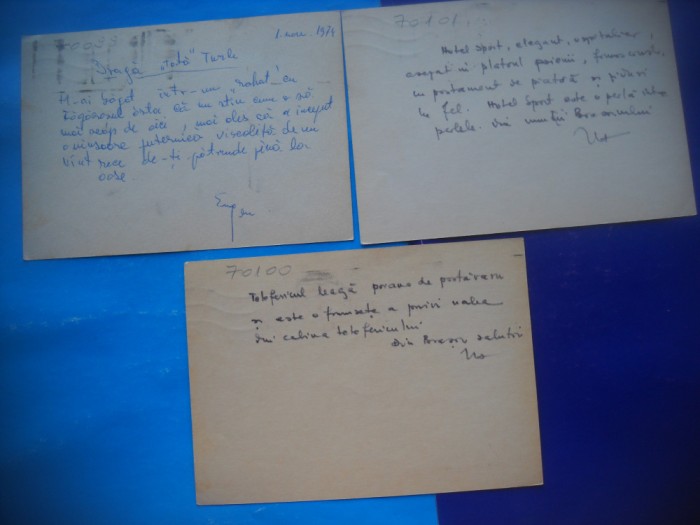 70099
1. nov. 1974
Draga "Tată" Turle
M-ai băgat într-un "rahat" cu
ăsta că nu știu cum o să
mai scap de aici, mai ales că a început
o ninsoare puternică viscolită de un
vînt rece de-ți pătrunde pînă la
oase
Eugen
70101
Hotel Sport, elegant, ospitalier,
așezat în platoul poienii, frumos
cu postament de piatră și
Hotel Sport este o perlă între
perlele din munții Brasovului
70100
Telefericul leagă poiana de postăvaru
și este o frumsețe a privi valea
din cabina teleferecului
din Brașov salutări